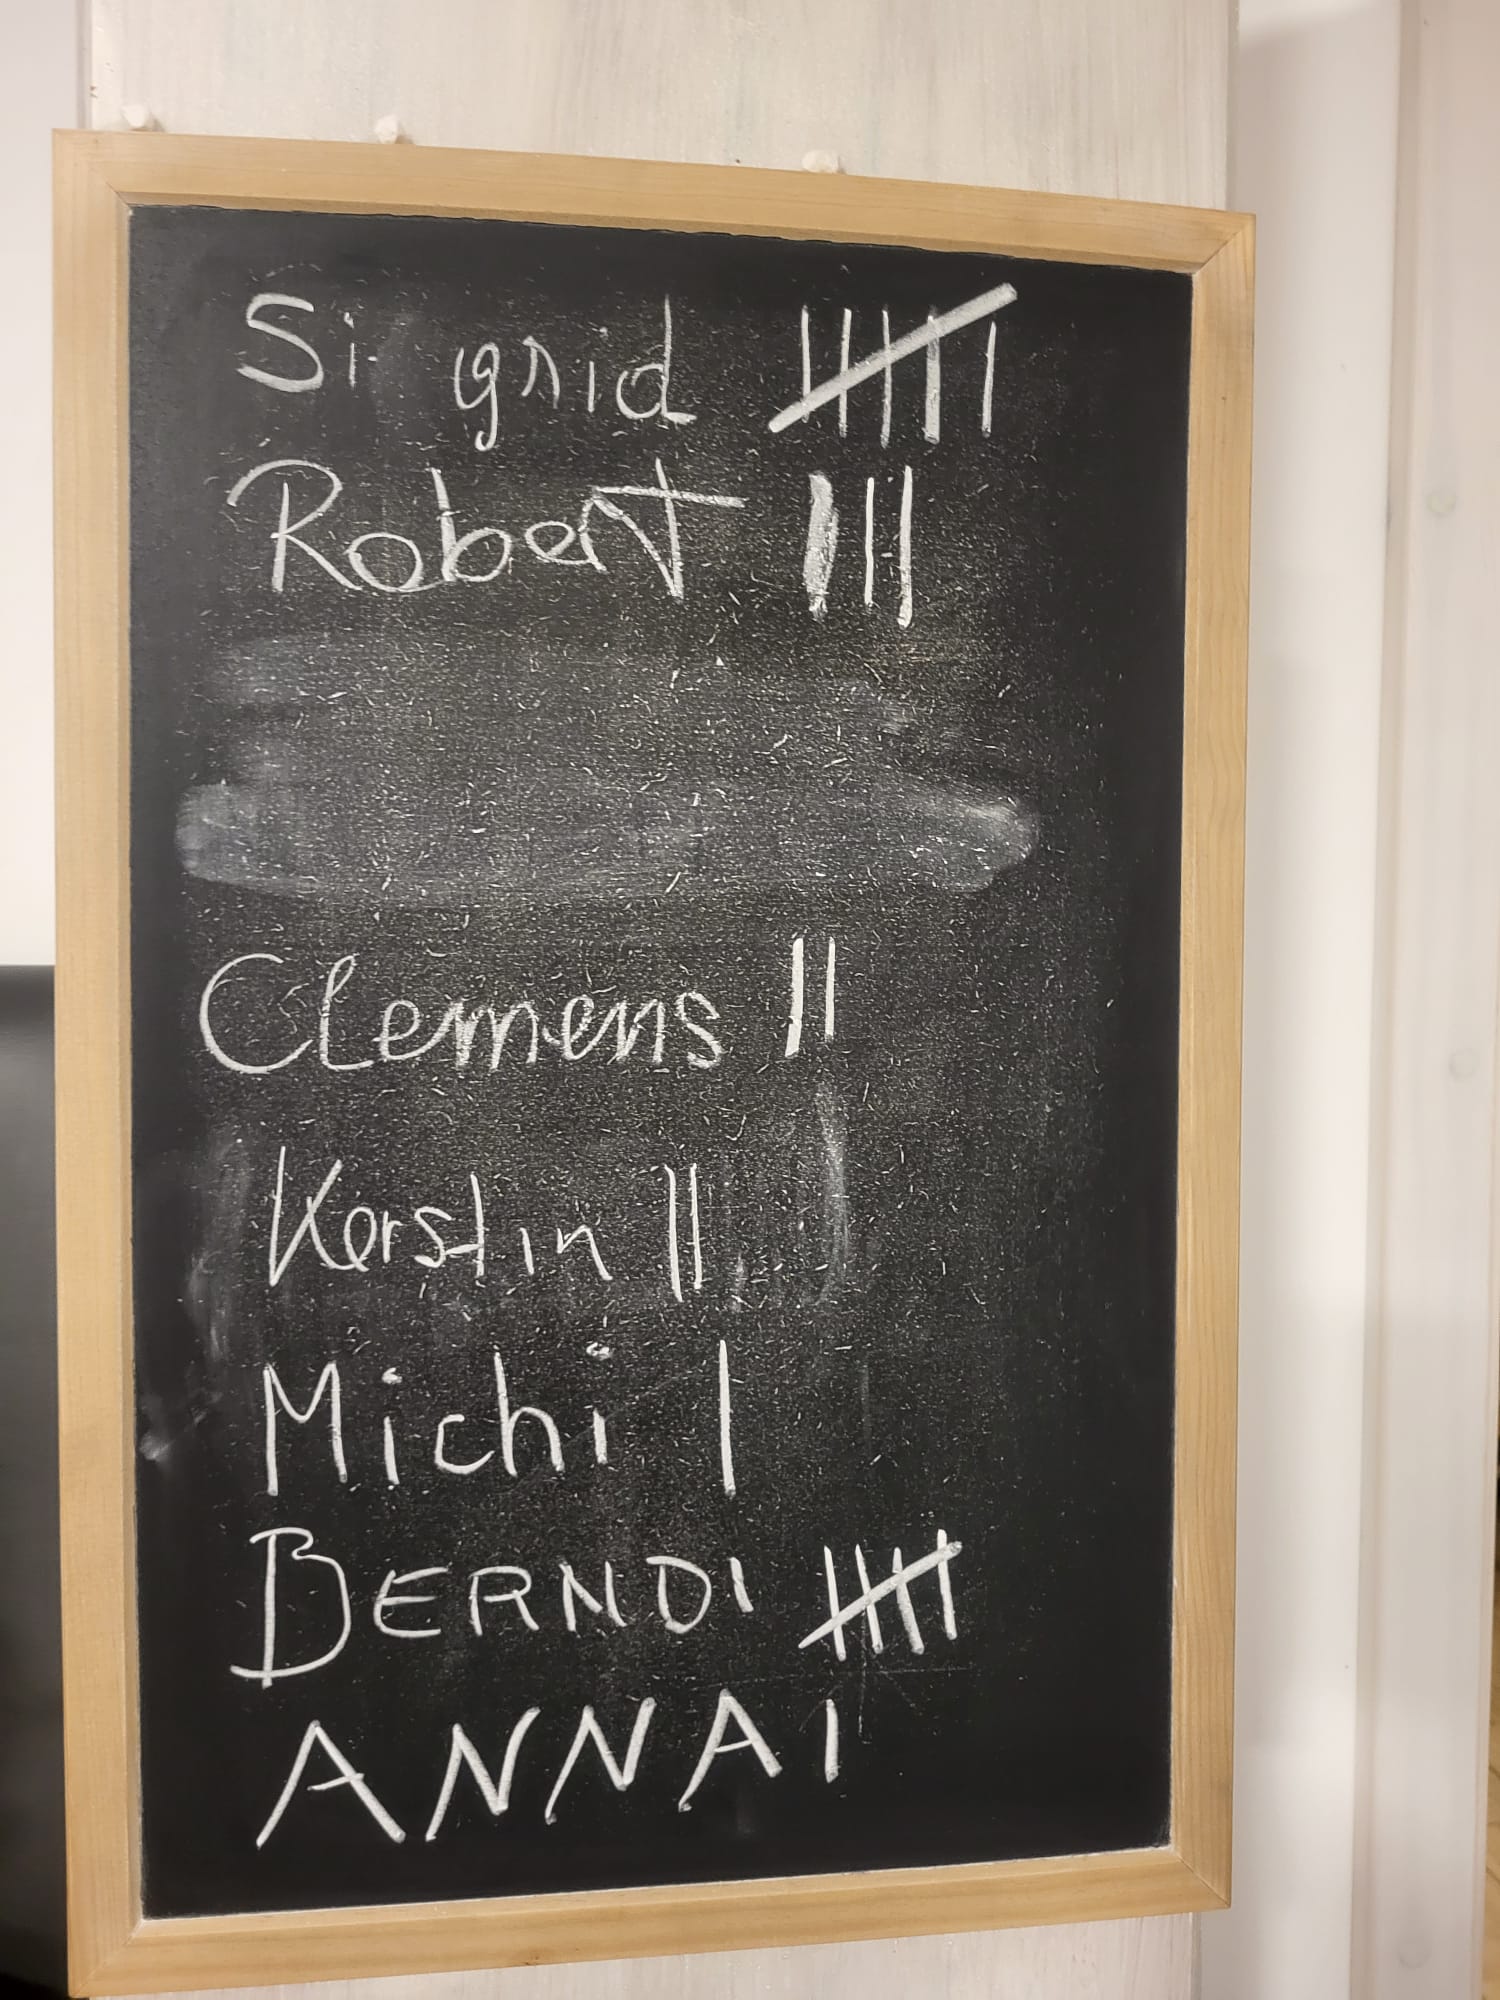 Sigrid |||| |
Robert |||
Clemens ||
Kerstin ||
Michi |
BERNDI ||||
ANNA |